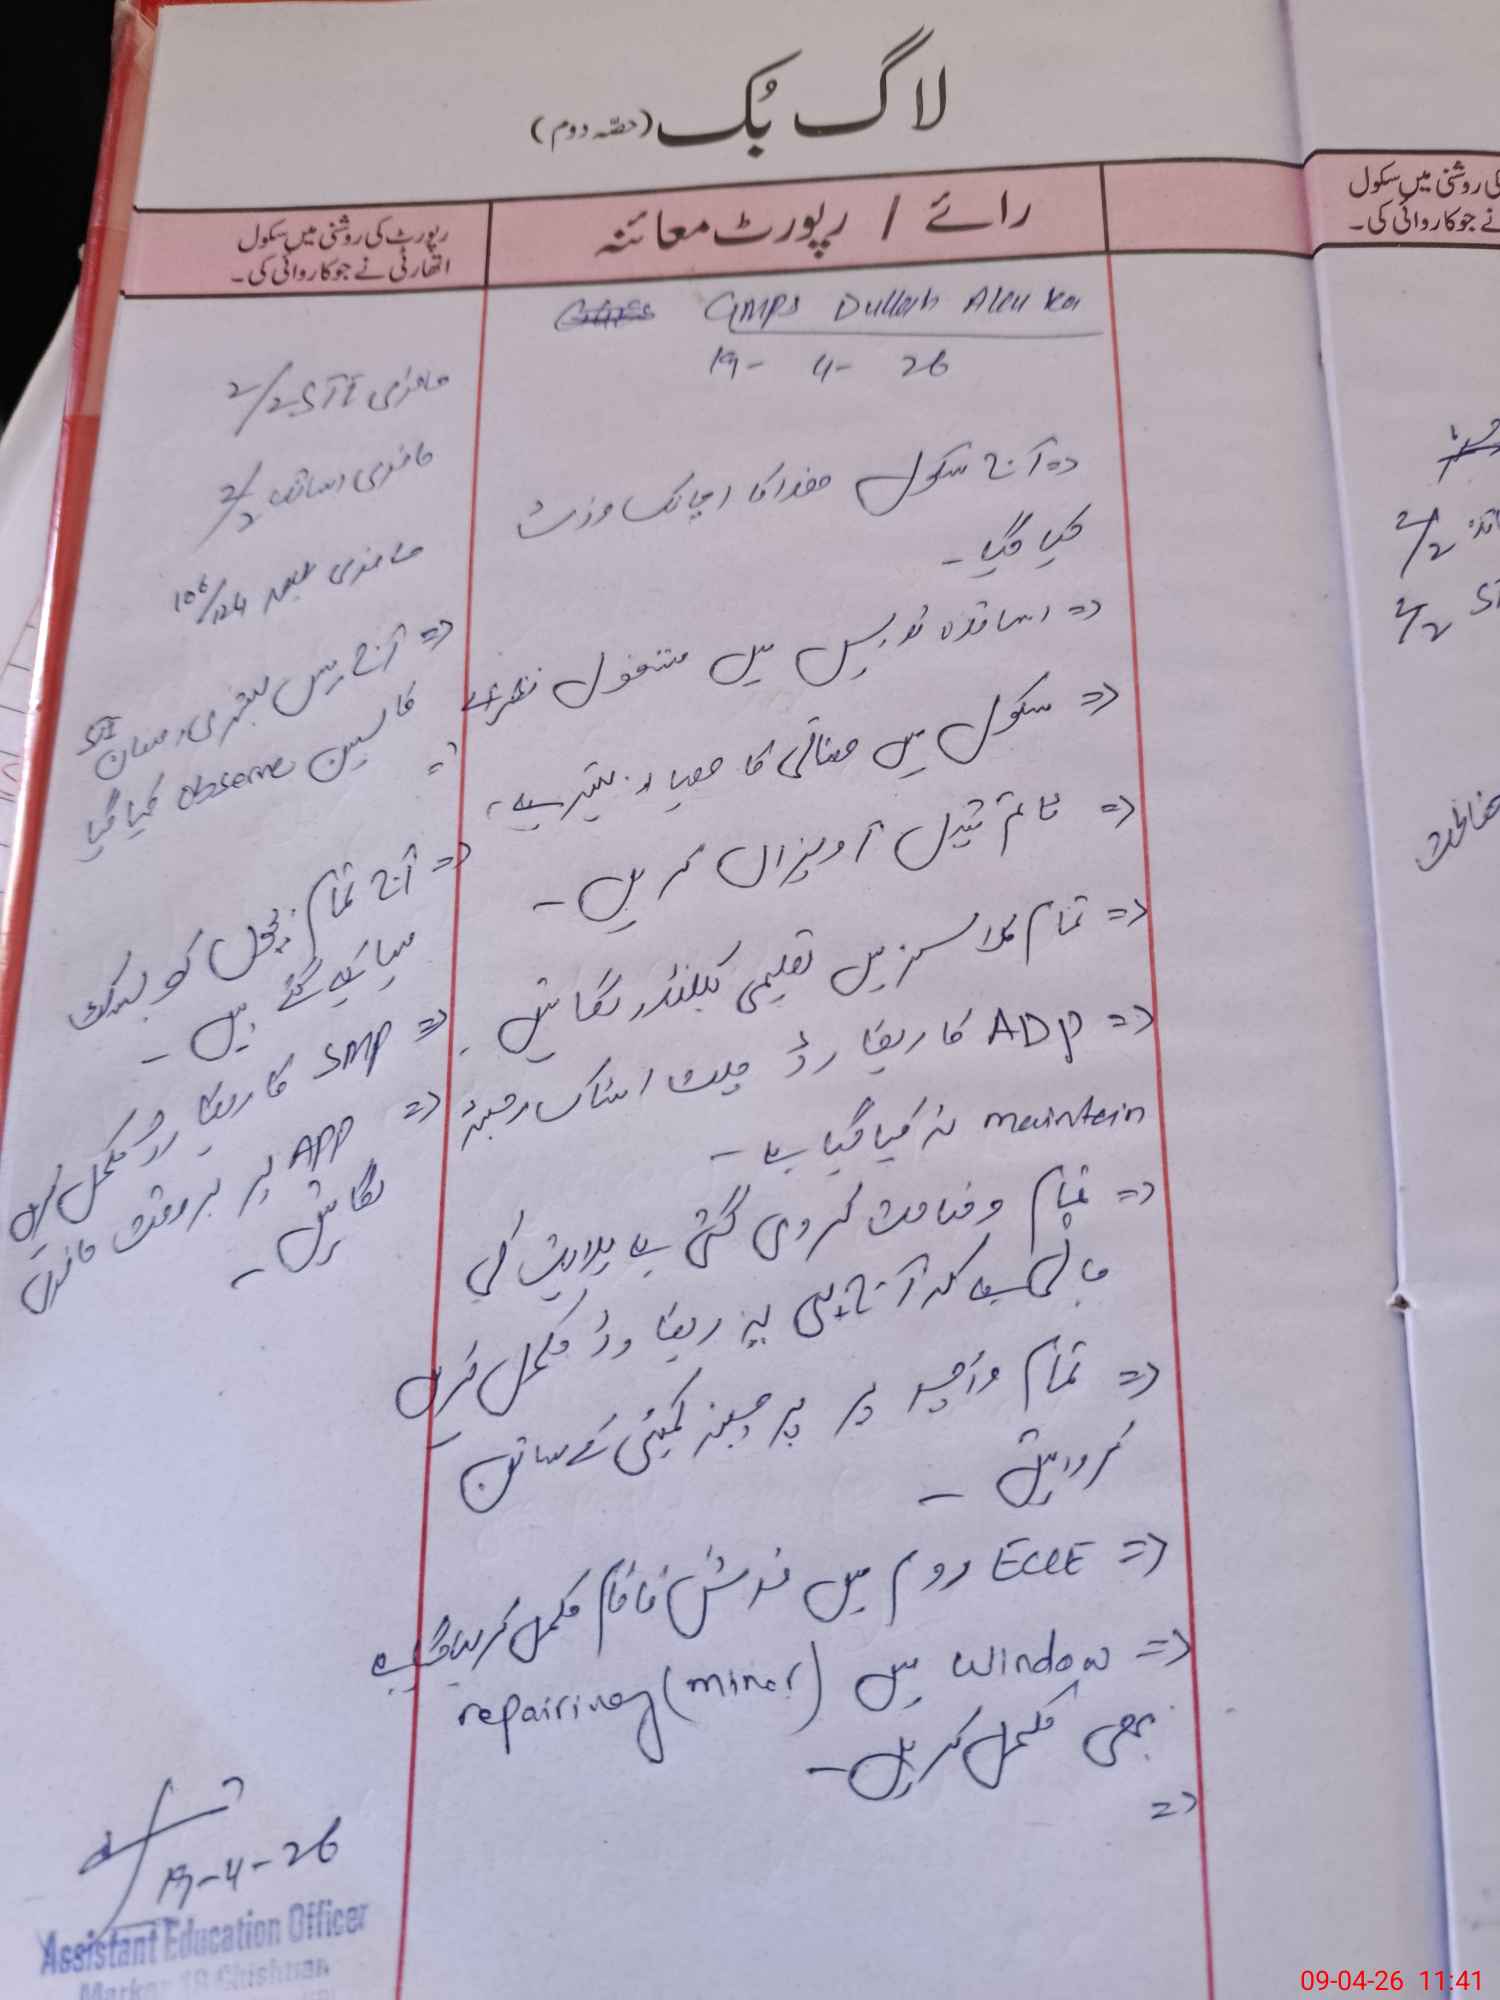 لاگ بُک (حصّہ دوم)
رائے / رپورٹ معائنہ
رپورٹ کی روشنی میں سکول
اتھارٹی نے جو کاروائی کی۔
GMPS Dullah
19- 4- 26
=> آج سکول ھذا کا اچانک وزٹ
کیا گیا۔
=> اساتذہ تدریس میں مشغول نظر آئے
=> سکول میں صفائی کا معیار بہتر ہے۔
=> ٹائم ٹیبل آویزاں کریں۔
=> تمام کلاسز میں تعلیمی کیلنڈر لگائیں۔
=> ADP کا ریکارڈ اسٹاک رجسٹر
maintain نہ کیا گیا ہے۔
=> تمام وضاحت کر دی گئی ہے ہدایت کی
جاتی ہے کہ آج ہی ریکارڈ مکمل کریں
=> تمام واؤچر پر پرچیز کمیٹی کے سائن
کروائیں۔
=> ECCE روم میں فرش کا کام مکمل
=> window میں repairing (minor)
بھی مکمل کریں۔
=>
حاضری STI 2/2
حاضری اساتذہ 2/2
حاضری 106/124
=> آج مس بشری STI
کا لیسن observe کیا گیا
=> آج تمام بچوں کو
کیے گئے ہیں۔
=> SMP کا ریکارڈ مکمل کریں
=> APP پر بروقت حاضری
لگائیں۔
19-4-26
Assistant Education Officer
کی روشنی میں سکول
نے جو کاروائی کی۔
2/2
2/2 ST
حفاظت
09-04-26 11:41